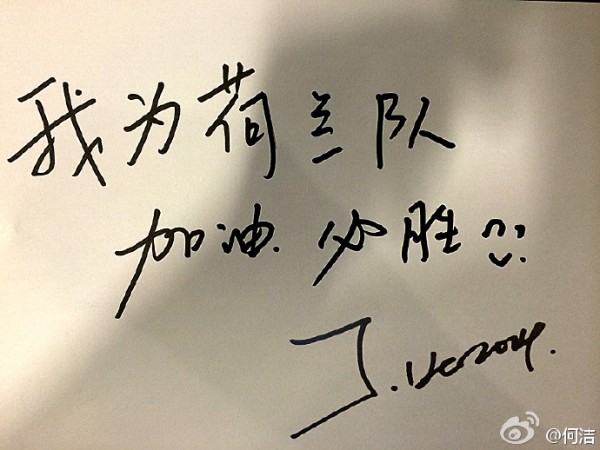 我为荷兰队
加油.必胜
J.He 2014.
@何洁